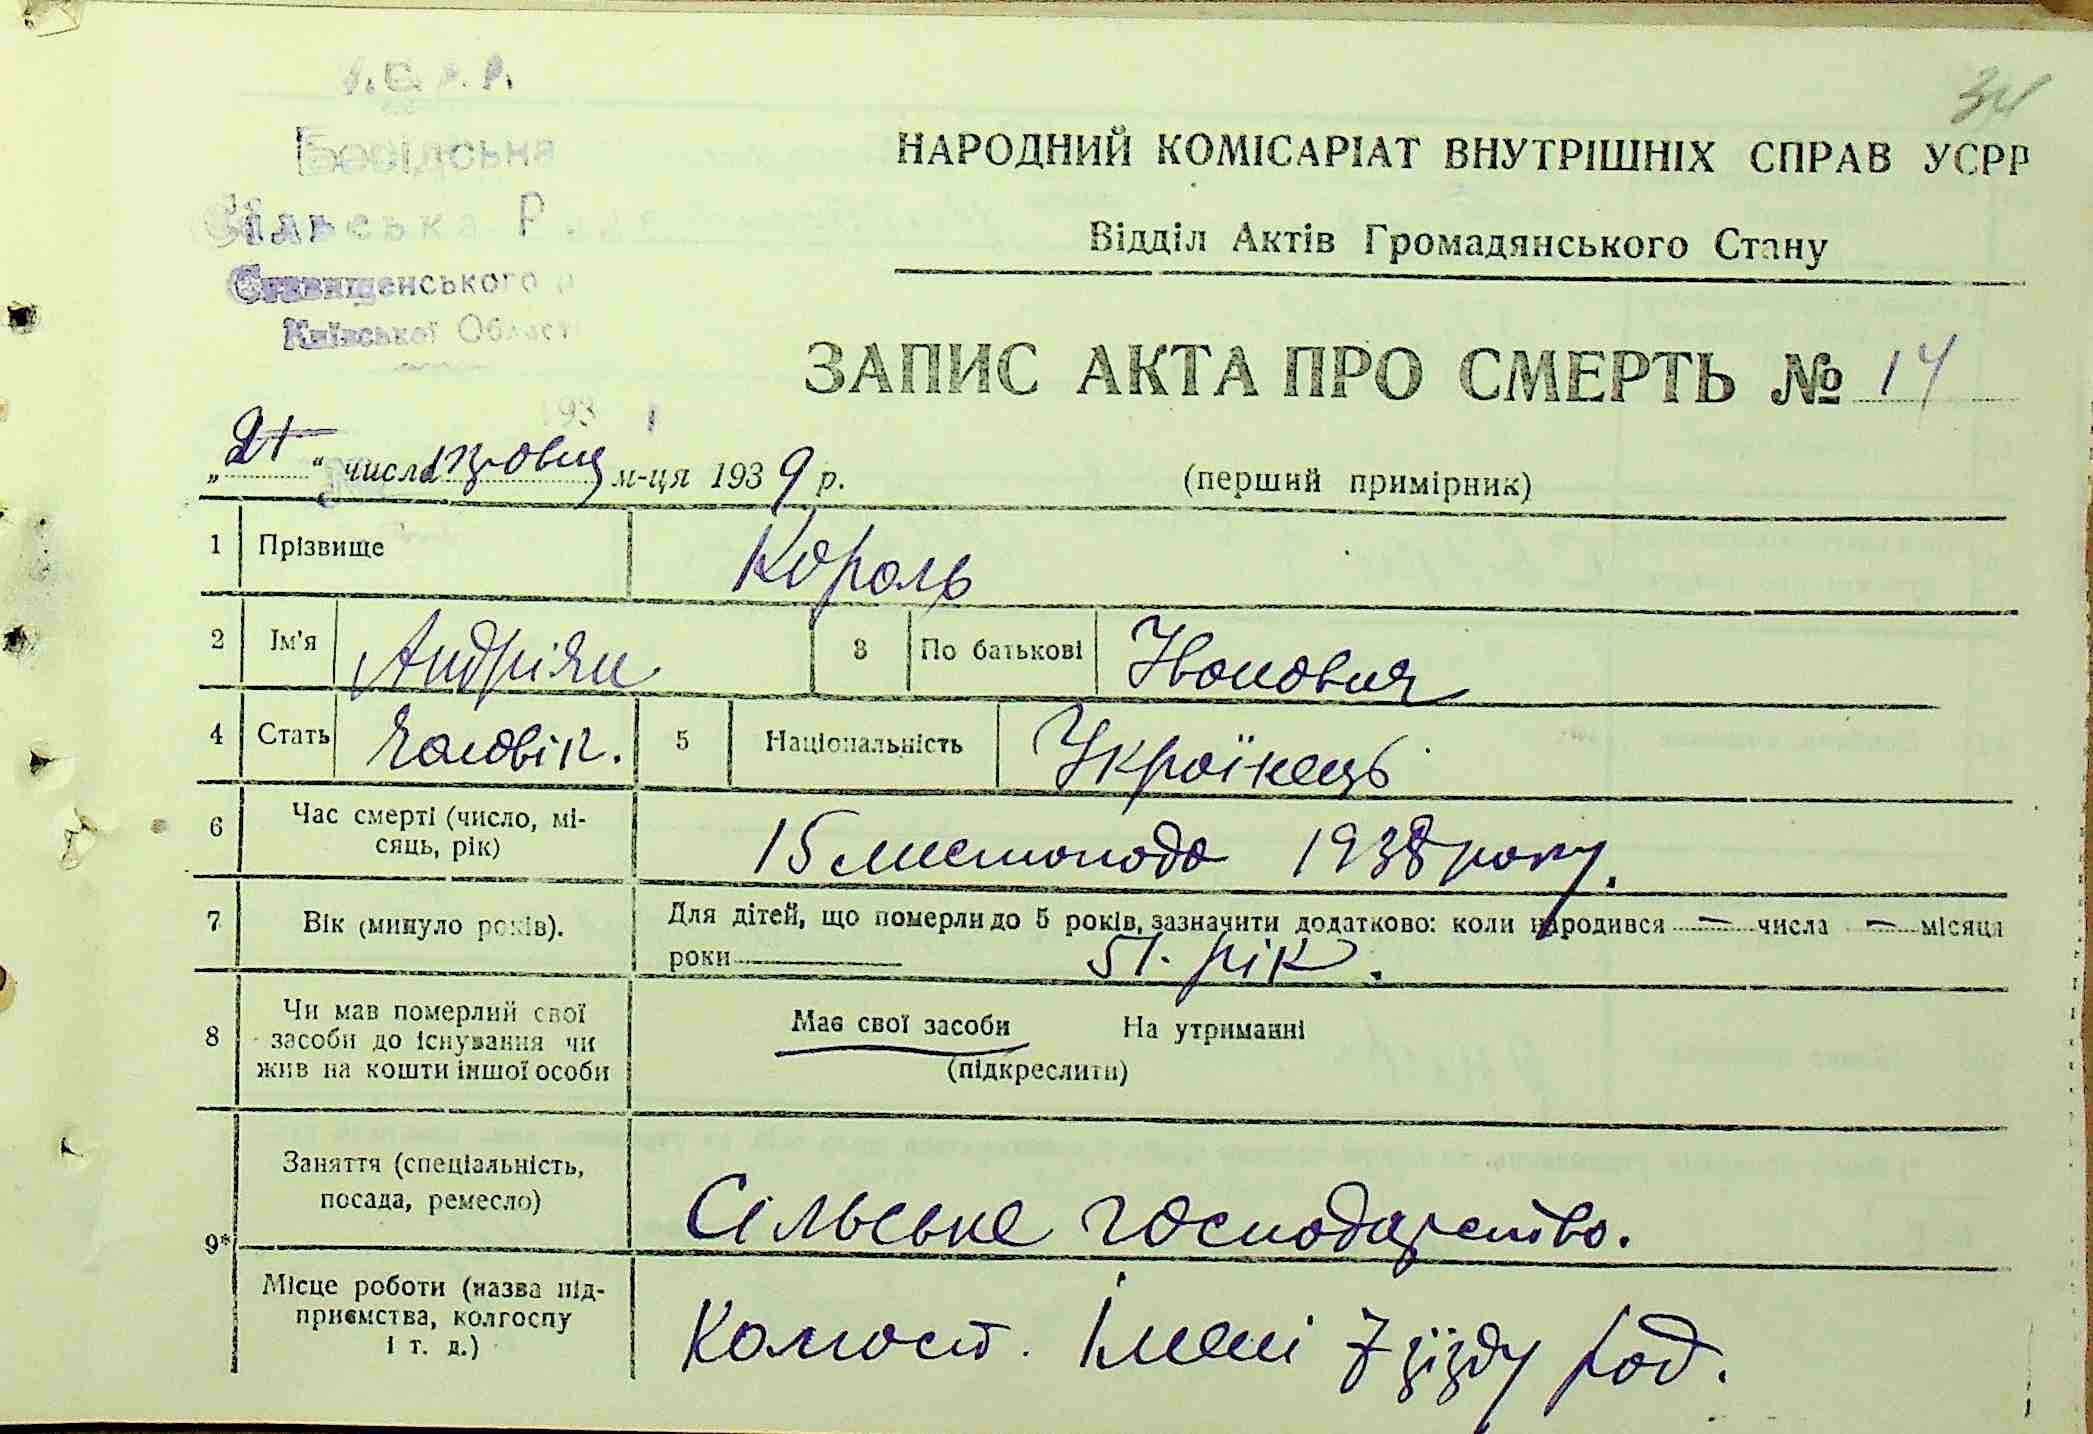 34
НАРОДНИЙ КОМІСАРІАТ ВНУТРІШНІХ СПРАВ УСРР
Відділ Актів Громадянського Стану
Сільська Рада
Ставищенського
Київської Област
ЗАПИС АКТА ПРО СМЕРТЬ № 14
193
„21“ числа м-ця 1939 р. (перший примірник)
1 Прізвище Король
2 Ім'я Андріян 3 По батькові Іванович
4 Стать Чоловік. 5 Національність Українець
6 Час смерті (число, мі-
сяць, рік) 15 листопада 1938 року.
7 Вік (минуло років). Для дітей, що померли до 5 років, зазначити додатково: коли народився — числа — місяця
роки 51. рік.
8 Чи мав померлий свої
засоби до існування чи
жив на кошти іншої особи
Має свої засоби На утриманні
(підкреслити)
9* Заняття (спеціальність,
посада, ремесло) Сільське господарство.
Місце роботи (назва під-
приємства, колгоспу
і т. д.) імені 7 зїзду рад.